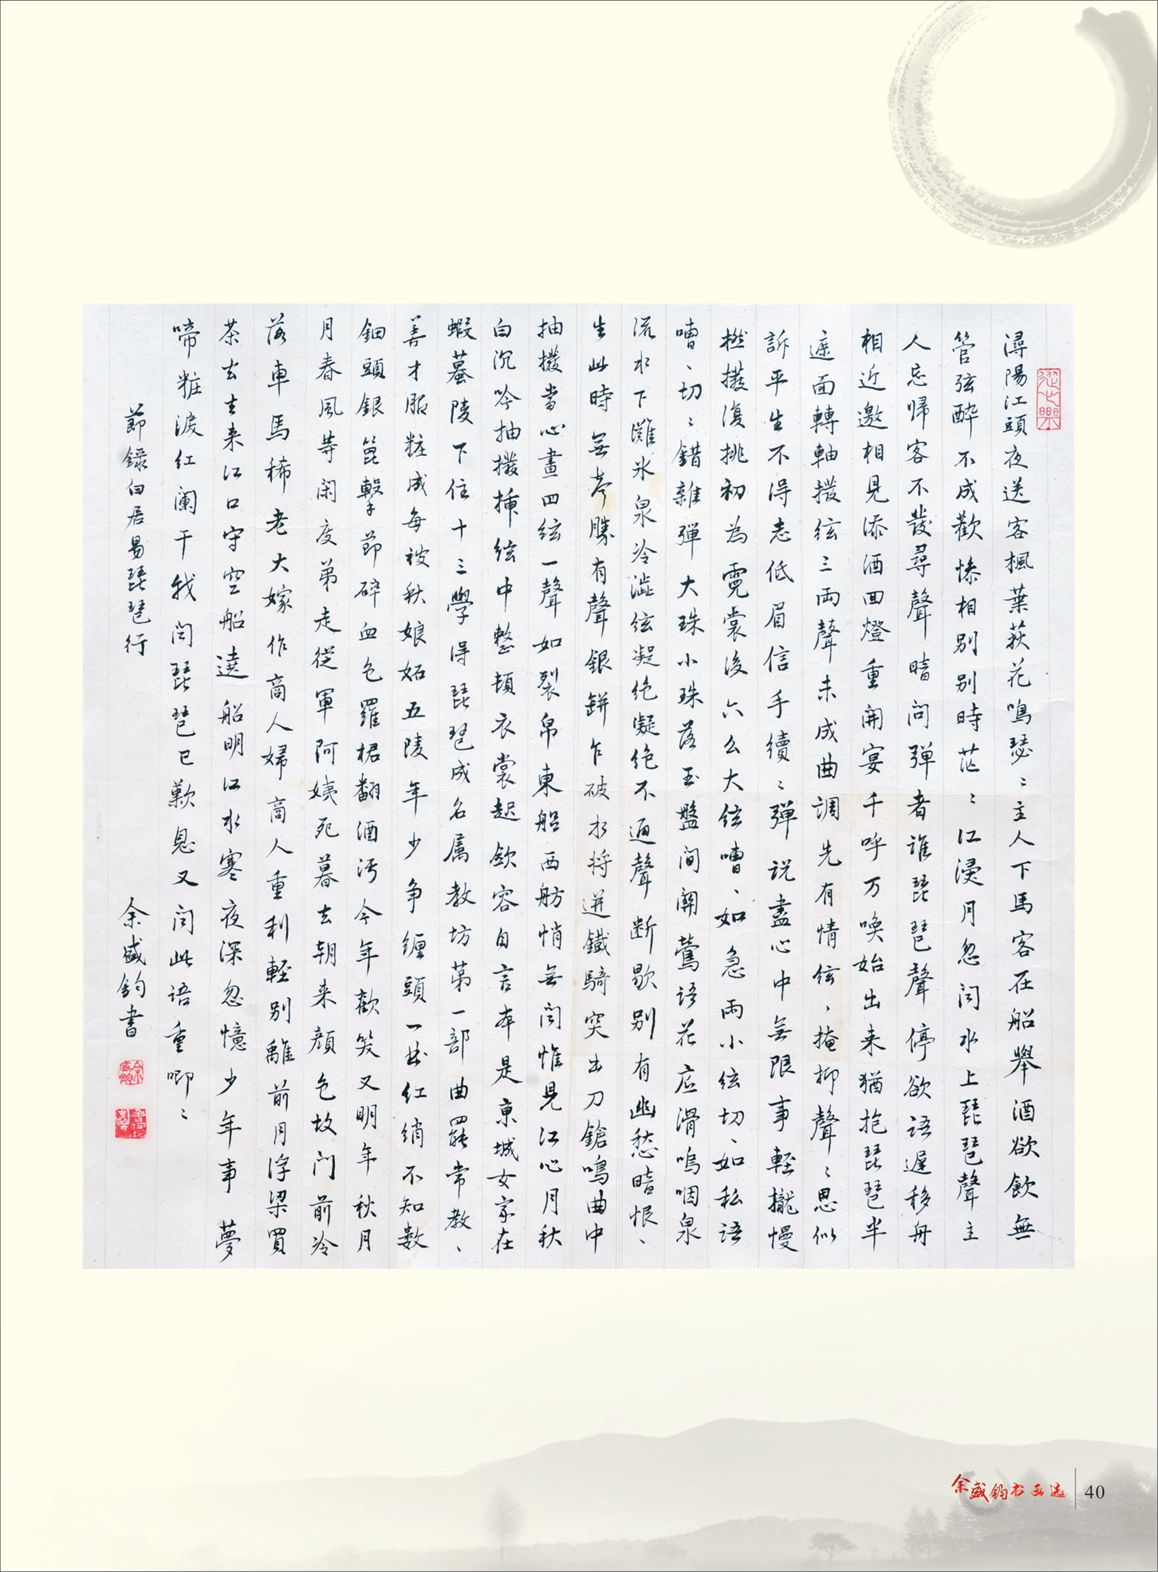 潯陽江頭夜送客楓葉荻花鳴瑟〻主人下馬客在船舉酒欲飲無
管弦醉不成歡慘相別別時茫〻江浸月忽闻水上琵琶聲主
人忘歸客不發尋聲暗问彈者谁琵琶聲停欲语遲移舟
相近邀相見添酒回燈重開宴千呼万唤始出来猶抱琵琶半
遮面轉軸撥絃三兩聲未成曲調先有情絃〻掩抑聲〻思似
訴平生不得志低眉信手續〻彈说盡心中無限事輕攏慢
撚撥復挑初為霓裳後六幺大弦嘈〻如急雨小絃切〻如私语
嘈〻切〻錯雜彈大珠小珠落玉盤间關鶯语花底滑嗚咽泉
流水下灘氷泉冷澁絃凝绝凝绝不通聲断歇别有幽愁暗恨〻
生此時無声勝有聲銀缾乍破水將迸鐵騎突出刀鎗鳴曲中
抽撥當心畫四絃一聲如裂帛東船西舫悄無闻惟見江心月秋
白沉吟抽撥插絃中整頓衣裳起歛容自言本是京城女家在
蝦蟇陵下住十三學得琵琶成名属教坊第一部曲罷常教〻
善才服粧成每被秋娘妬五陵年少争缠頭一曲红绡不知数
钿頭銀篦擊節碎血色羅裙翻酒污今年歡笑又明年秋月
月春風等闲度弟走從軍阿姨死暮去朝来顔色故门前冷
落車馬稀老大嫁作商人婦商人重利輕别離前月浮梁買
茶去去来江口守空船遶船明江水寒夜深忽憶少年事夢
啼粧淚红阑干我闻琵琶已歎息又闻此语重唧〻
節錄白居易琵琶行
余盛鈞書
余盛鈞书画选
40